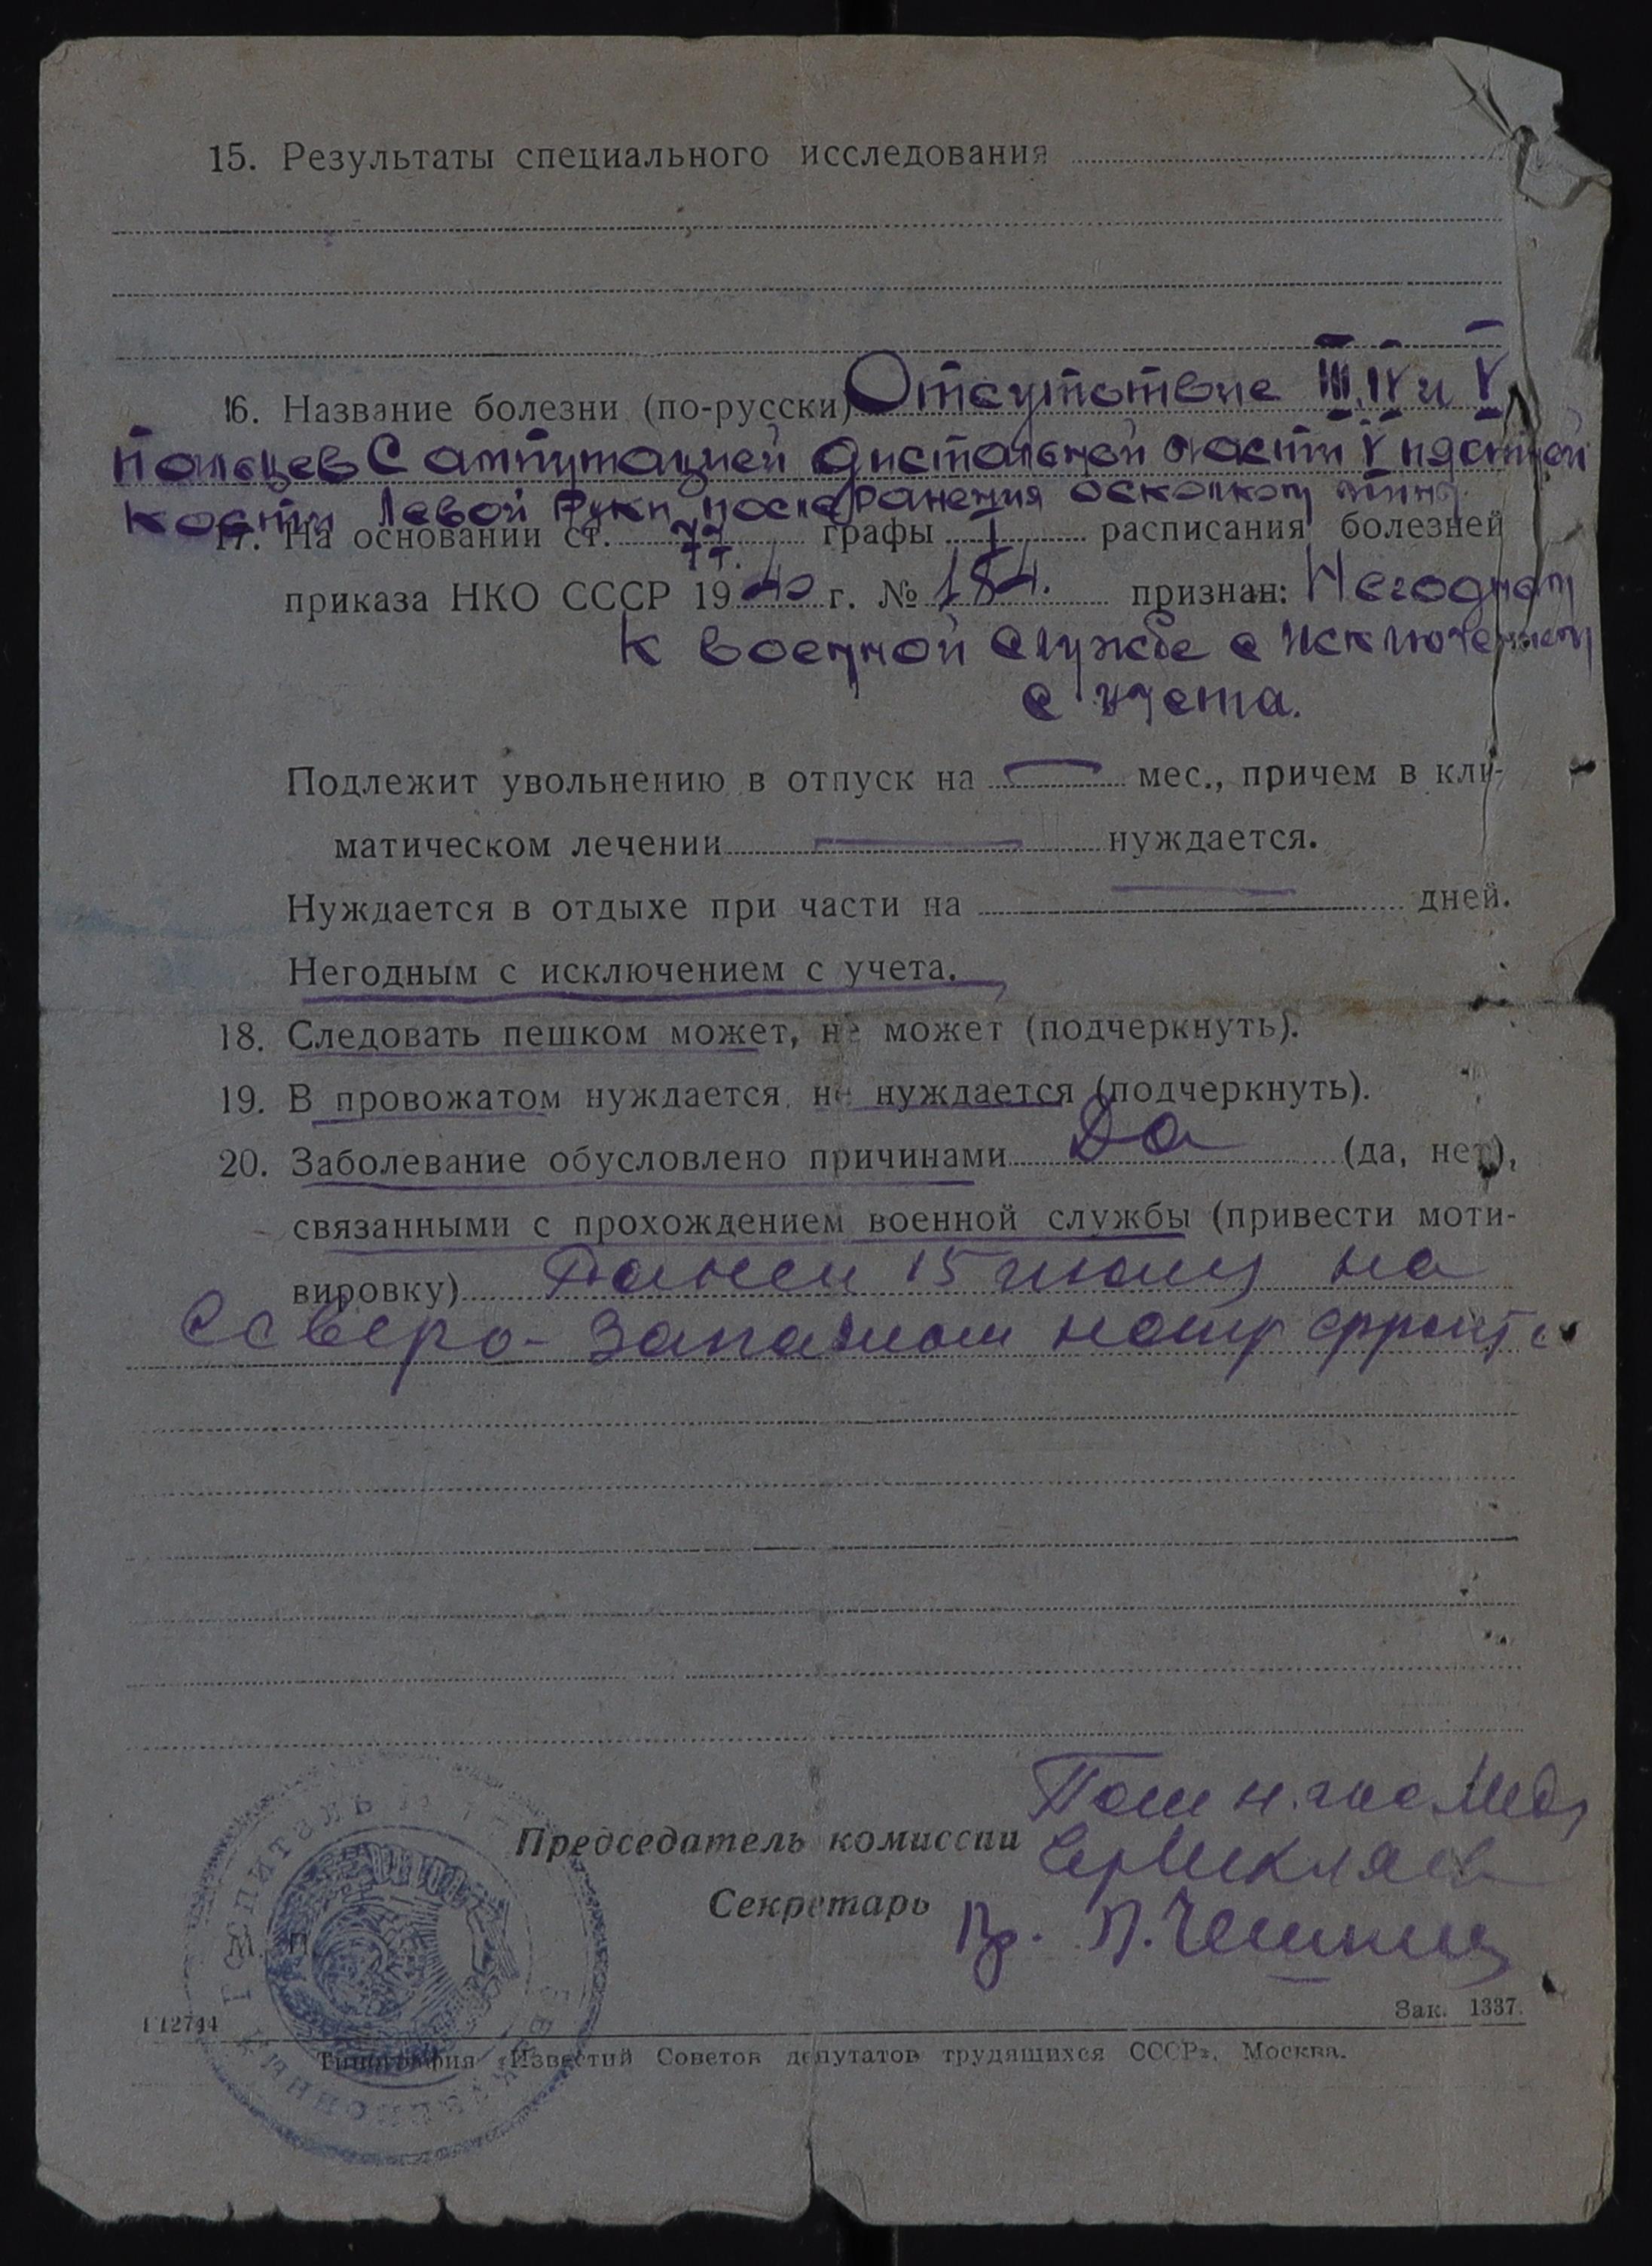 15. Результаты специального исследования
16. Название болезни (по-русски) Отсутствие III, IV и V
пальцев с ампутацией дистальной части V пястной
кости левой руки после ранения осколком мины
17. На основании ст. 77. графы I расписания болезней
приказа НКО СССР 1940 г. № 184. признан: Негодным
к военной службе с исключением
с учета.
Подлежит увольнению в отпуск на — мес., причем в кли-
матическом лечении — нуждается.
Нуждается в отдыхе при части на — дней.
Негодным с исключением с учета.
18. Следовать пешком может, не может (подчеркнуть).
19. В провожатом нуждается, не нуждается (подчеркнуть).
20. Заболевание обусловлено причинами Да (да, нет),
связанными с прохождением военной службы (привести моти-
вировку) Ранен 15 на
Северо-Западном фронте
Председатель комиссии
Секретарь
Госпиталь
М. П.
Зак. 1337.
Типография „Известий Советов депутатов трудящихся СССР“, Москва.